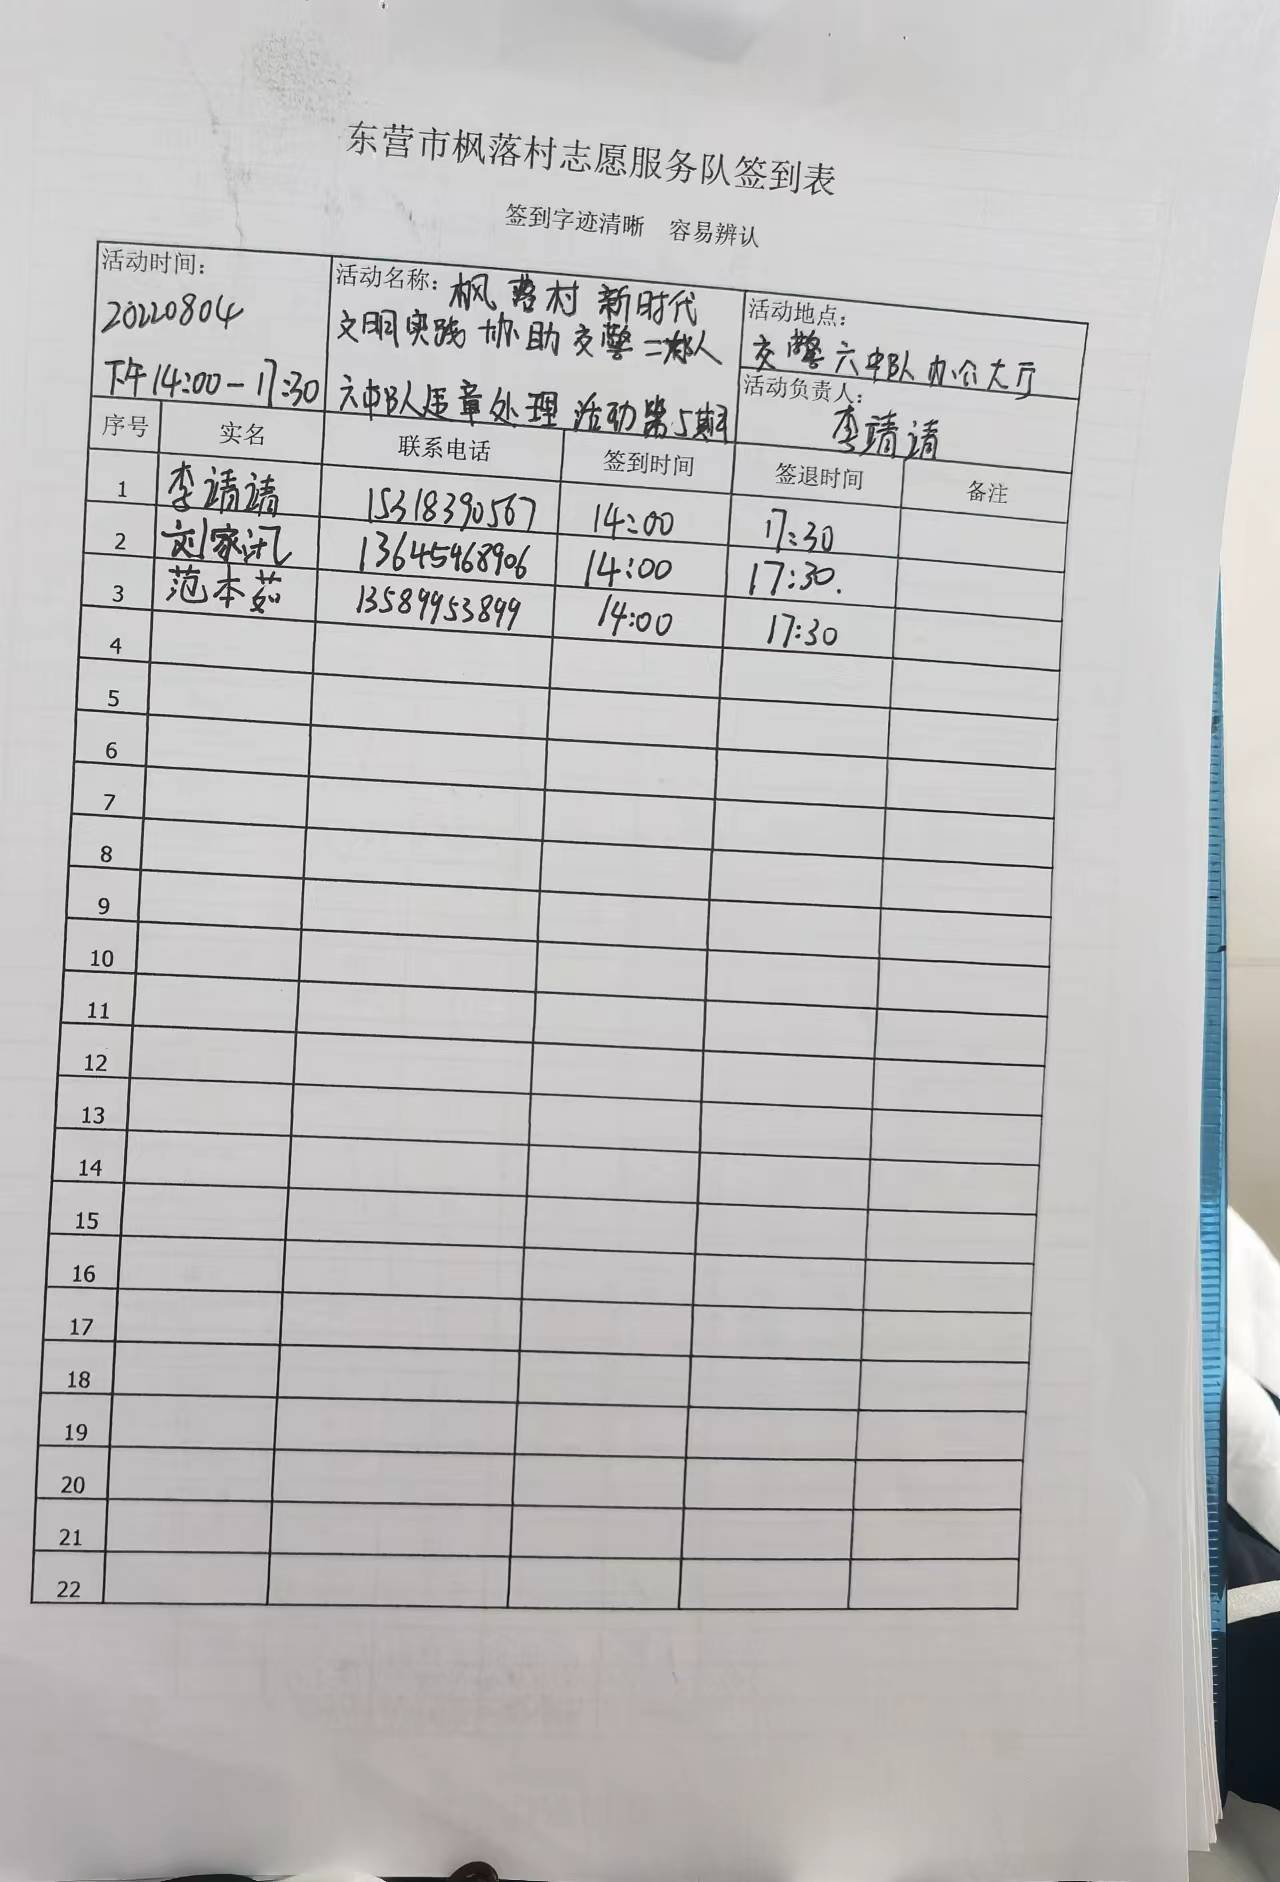 东营市枫落村志愿服务队签到表
签到字迹清晰 容易辨认
活动时间：
20220804
下午14:00-17:30
活动名称：枫落村新时代
文明实践协助交警二大队
六中队违章处理活动第5期
活动地点：
交警六中队办公大厅
活动负责人：
李靖靖
序号 实名 联系电话 签到时间 签退时间 备注
1 李靖靖 15318390567 14:00 17:30
2 刘家汛 13645468906 14:00 17:30.
3 范本茹 13589953899 14:00 17:30
4
5
6
7
8
9
10
11
12
13
14
15
16
17
18
19
20
21
22